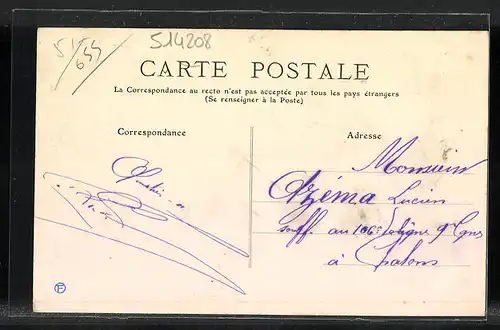 51
655
514208
CARTE POSTALE
La Correspondance au recto n'est pas acceptée par tous les pays étrangers
(Se renseigner à la Poste)
Correspondance
Adresse
Monsieur
Azéma Lucien
au 106e Ligne 9e Cie
à Chalons
F